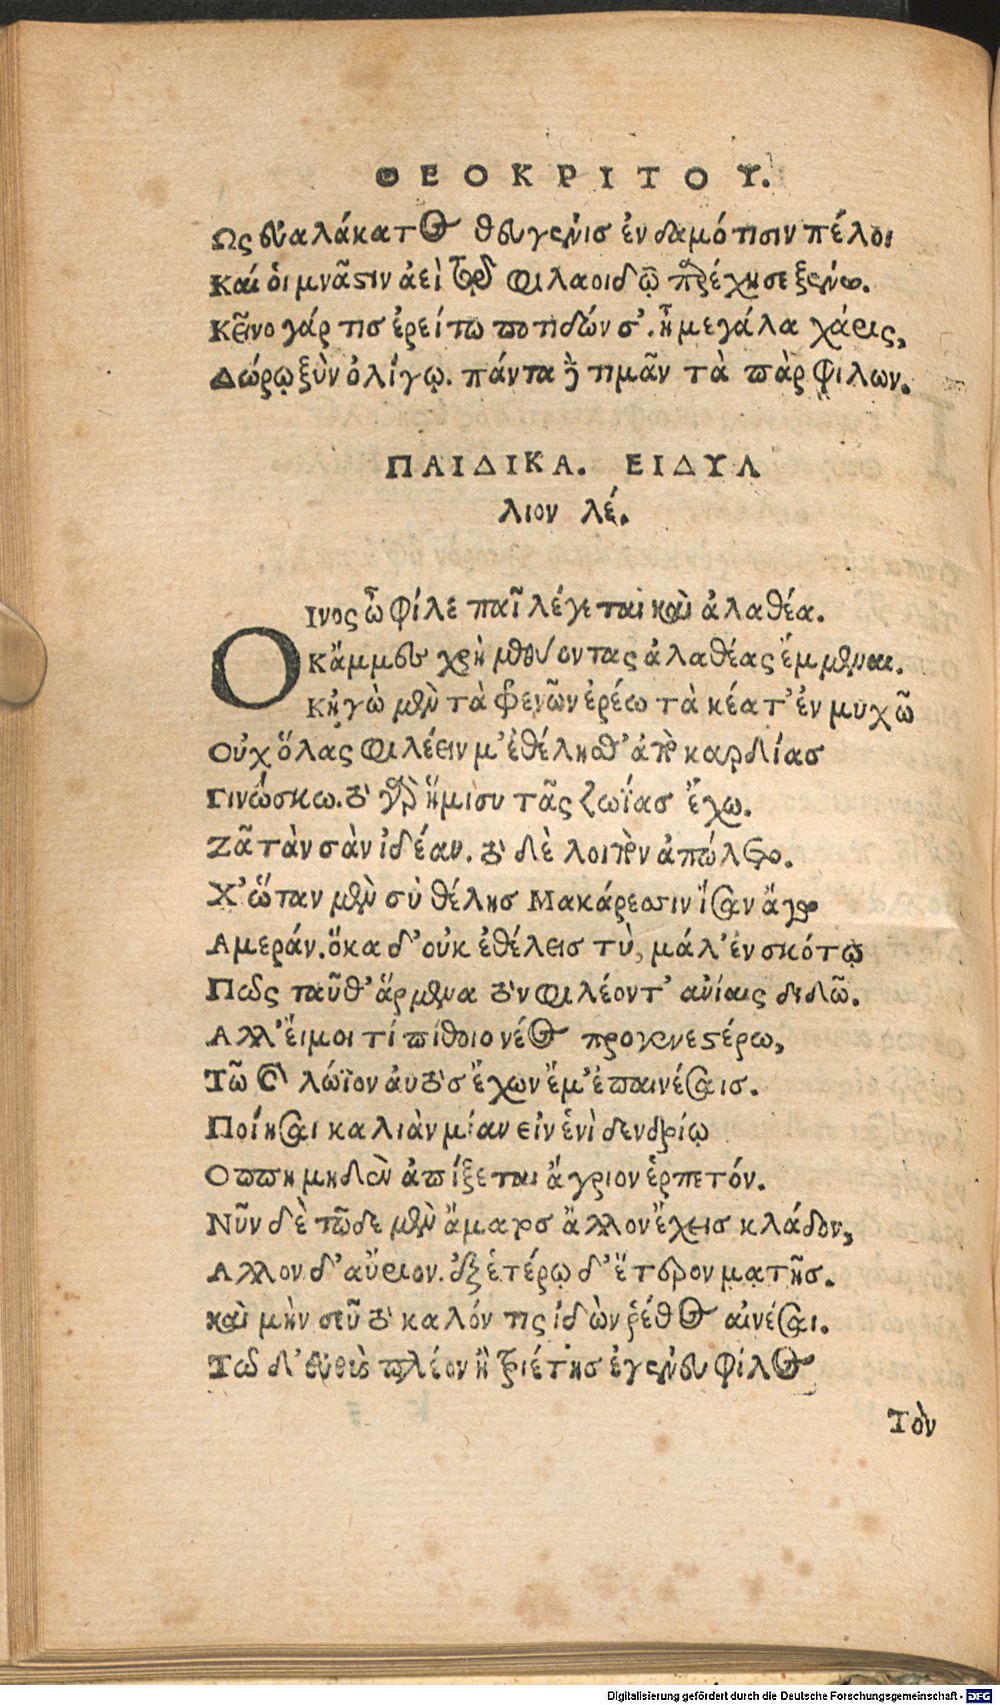 ΘΕΟΚΡΙΤΟΥ.
Ως ευαλάκατος θευγενὶσ ἐν δαμότισιν πέλοι
Καί ὁι μνᾶστιν ἀεὶ τοῦ φιλαοιδῶ παρέχησε ξείνω.
Κεῖνο γάρ τισ ἐρείτω ποτιδών σ'. ἦ μεγάλα χάρις,
Δώρῳ ξὺν ὀλίγῳ. πάντα δὲ τιμᾶν τὰ πὰρ φίλων.
ΠΑΙΔΙΚΑ. ΕΙΔΥΛ
λιον λέ.
ΟΙνος ὦ φίλε παῖ λέγεται καὶ ἀλαθέα.
Κἄμμευ χρὴ μεθύοντας ἀλαθέας ἔμμεναι.
Κἠγὼ μὲν τὰ φρενῶν ἐρέω τὰ κέατ' ἐν μυχῶ
Οὐχ ὅλας φιλέειν μ' ἐθέλησθ' ἀπὸ καρδίας
Γινώσκω. τὸ γὰρ ἥμισυ τᾶς ζωΐασ ἔχω.
Ζᾶ τὰν σὰν ἰδέαν. τὸ δὲ λοιπὸν ἀπώλετο.
Χ' ὥταν μὲν σὺ θέλησ Μακάρεσσιν ἴσαν ἄγω
Αμεράν. ὅκα δ' οὐκ ἐθέλεισ τὺ, μάλ' ἐν σκότῳ
Πῶς ταῦθ' ἄρμενα τὸν φιλέοντ' ἀνίαις διδῶ.
Αλλ' ἔιμοι τί πίθοιο νέος προγενεστέρω,
Τῶ καὶ λώϊον αὐτὸσ ἔχων ἔμ' ἐπαινέσαισ.
Ποίησαι καλιὰν μίαν εἰν ἑνὶ δενδρίῳ
Οππη μηδὲν ἀπίξεται ἄγριον ἑρπετόν.
Νῦν δὲ τῶδε μὲν ἄματοσ ἄλλον ἔχεισ κλάδον,
Αλλον δ' αὔριον. ἐξ ἑτέρῳ δ' ἕτερον ματῆσ.
καὶ μὴν σεῦ τὸ καλόν τις ἰδὼν ῥέθος αἰνέσαι.
Τῶ δ' εὐθὺς πλέον ἢ τριέτησ ἐγένευ φίλος
Τὸν
Digitalisierung gefördert durch die Deutsche Forschungsgemeinschaft - DFG